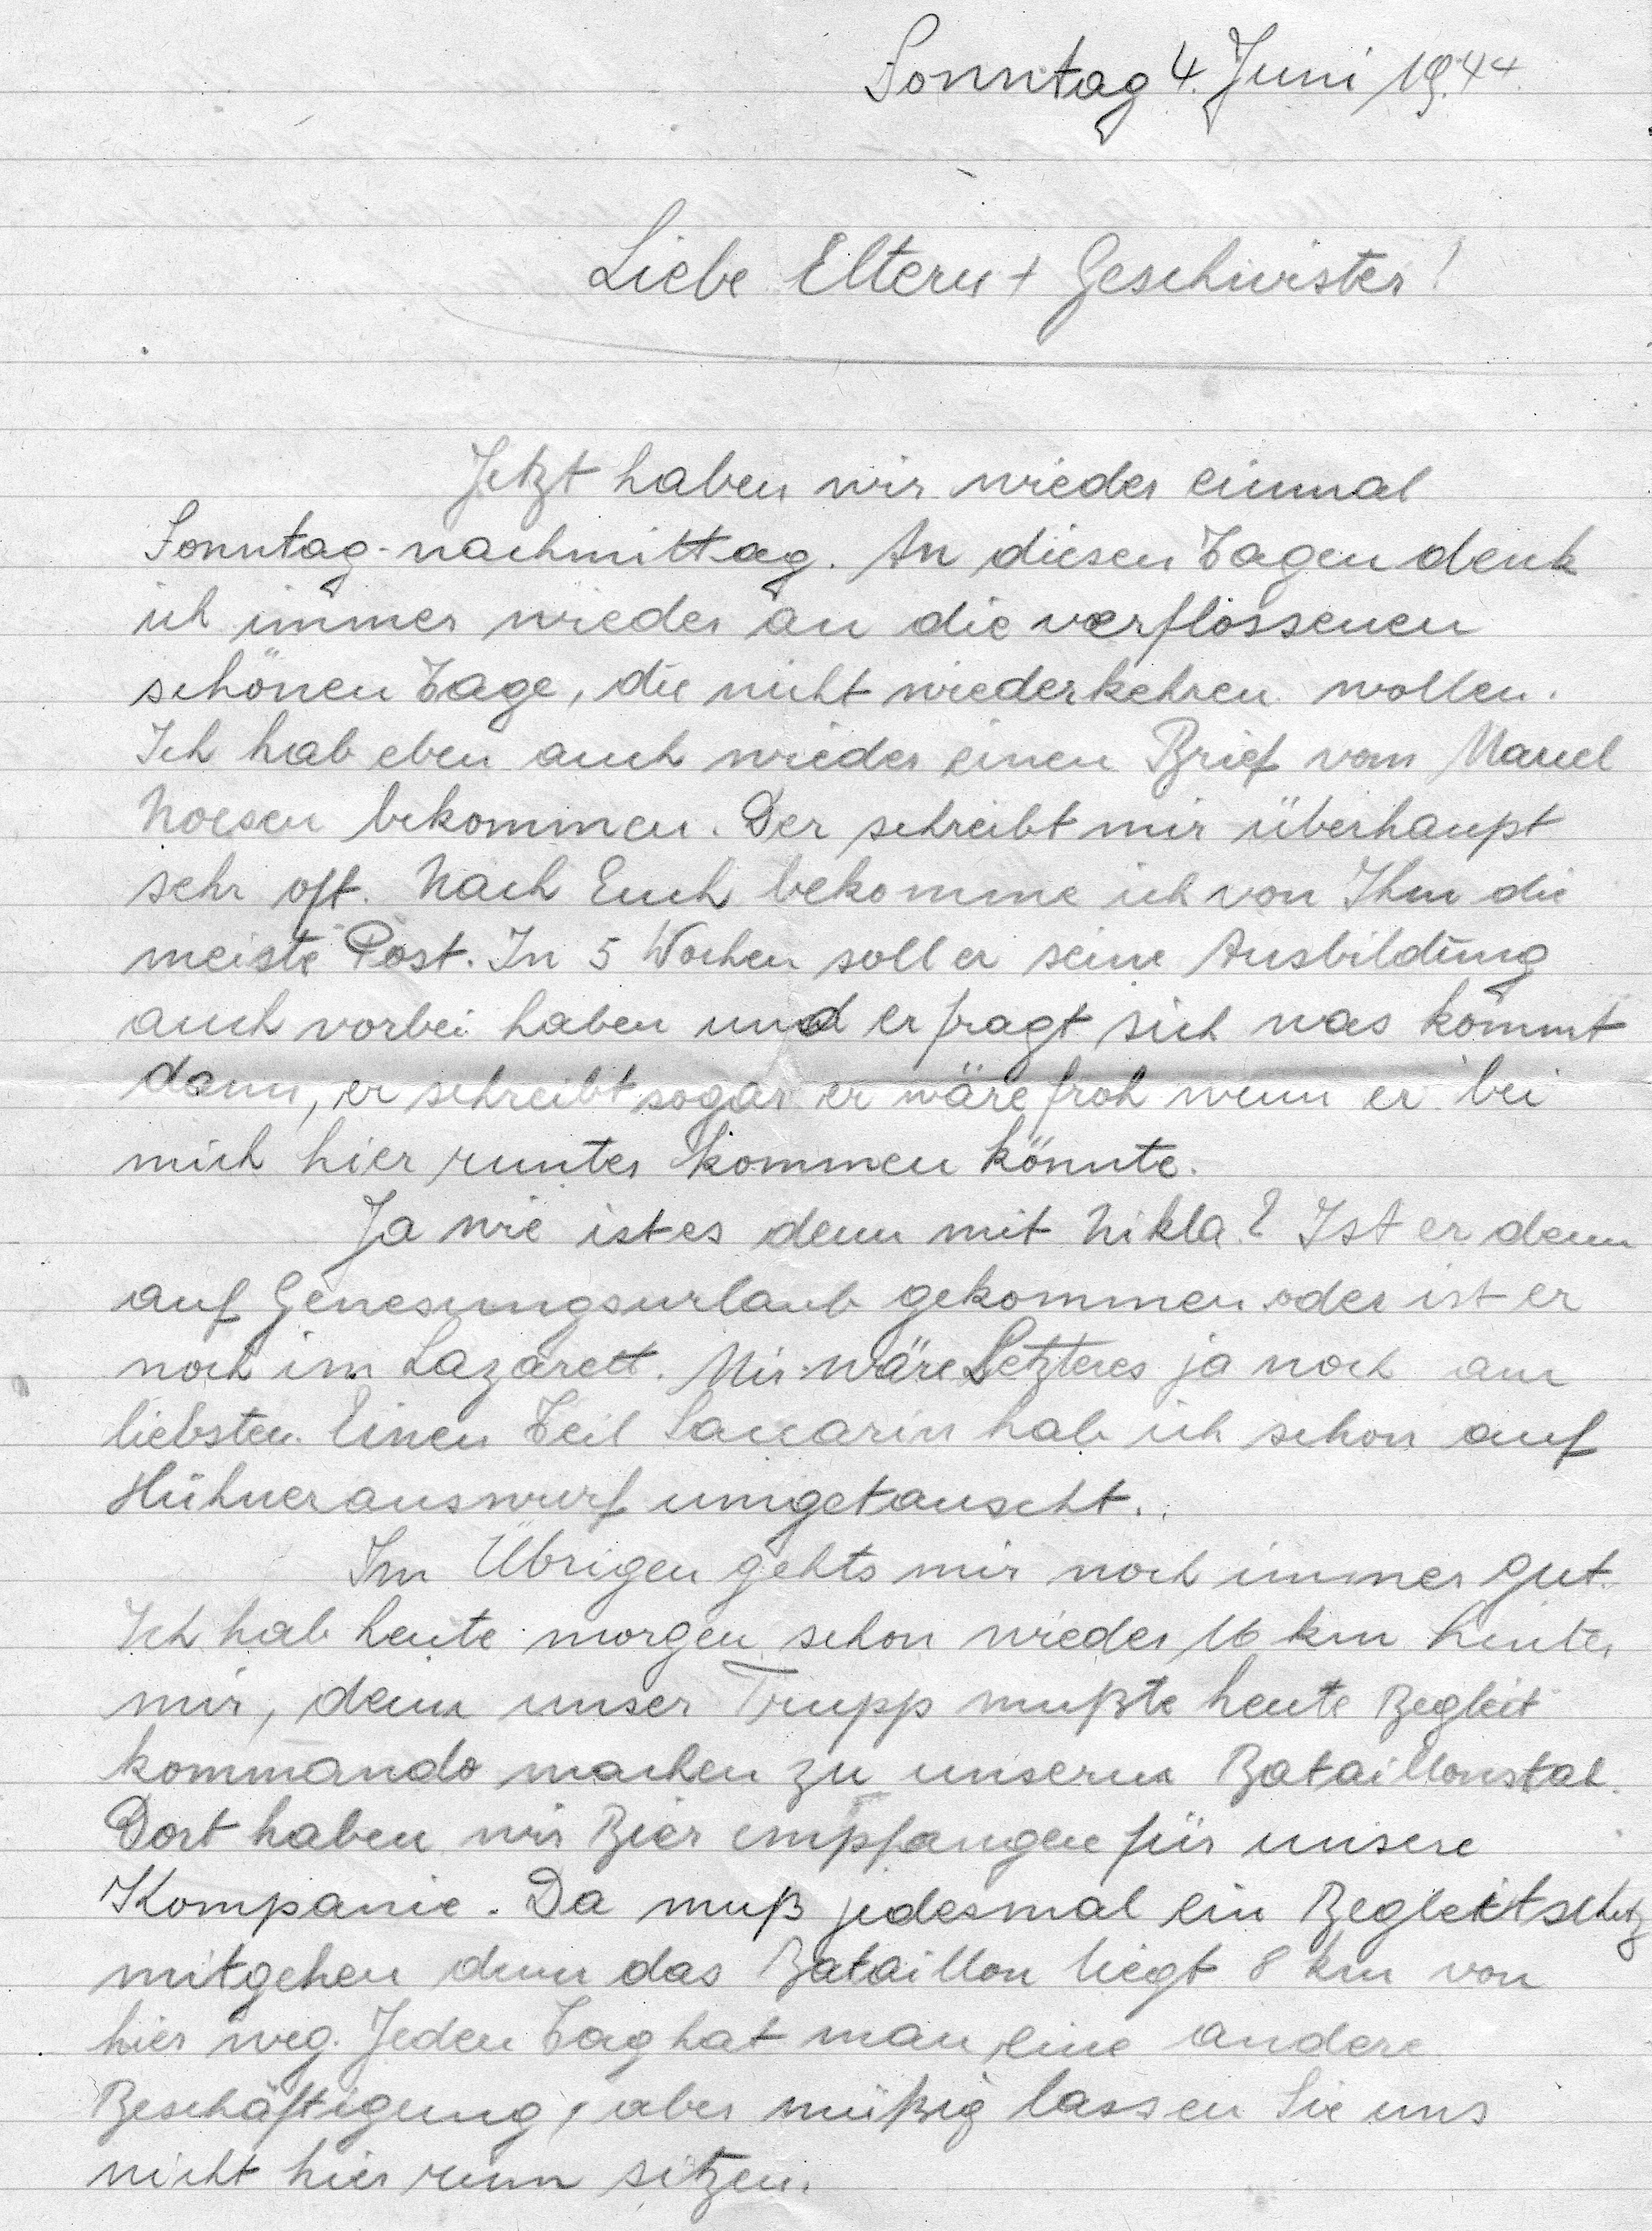 Sonntag 4. Juni 1944.
Liebe Eltern + Geschwister!
Jetzt haben wir wieder einmal
Sonntag-nachmittag. An diesen Tagen denk
ich immer wieder an die verflossenen
schönen Tage, die nicht wiederkehren wollen.
Ich hab eben auch wieder einen Brief vom Marcel
Noesen bekommen. Der schreibt mir überhaupt
sehr oft. Nach Euch bekomme ich von Ihm die
meiste Post. In 5 Wochen soll er seine Ausbildung
auch vorbei haben und er fragt sich was kommt
dann, er schreibt sogar er wäre froh wenn er bei
mich hier runter kommen könnte.
Ja wie ist es denn mit Nikla? Ist er denn
auf Genesungsurlaub gekommen oder ist er
noch im Lazarett. Mir wäre Letzteres ja noch am
liebsten. Einen Teil Saccarin hab ich schon auf
Hühnerauswurf umgetauscht.
Im Übrigen gehts mir noch immer gut.
Ich hab heute morgen schon wieder 16 km hinter
mir, denn unser Trupp mußte heute Begleit
kommando machen zu unserm Bataillonstab.
Dort haben wir Bier empfangen für unsere
Kompanie. Da muß jedesmal ein Begleitschutz
mitgehen denn das Bataillon liegt 8 km von
hier weg. Jeden Tag hat man eine andere
Beschäftigung, aber müßig lassen Sie uns
nicht hier rum sitzen.